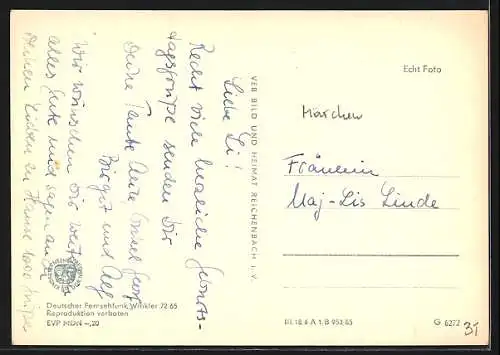 Liebe Li!
Recht viele herzliche Geburts-
tagsgrüße senden Dir
Deine Tante Anne, Onkel
Birgit und Alf
Wir wünschen Dir weiter
alles Gute und sagen auch
Deinen Lieben zu Hause
VEB BILD UND HEIMAT REICHENBACH I. V.
Echt Foto
Märchen
Fräulein
Maj-Lis Linde
Deutscher Fernsehfunk, Winkler 72/65
Reproduktion verboten
EVP MDN –,20
III 18 6 A 1.B 953/65
G 6272
31